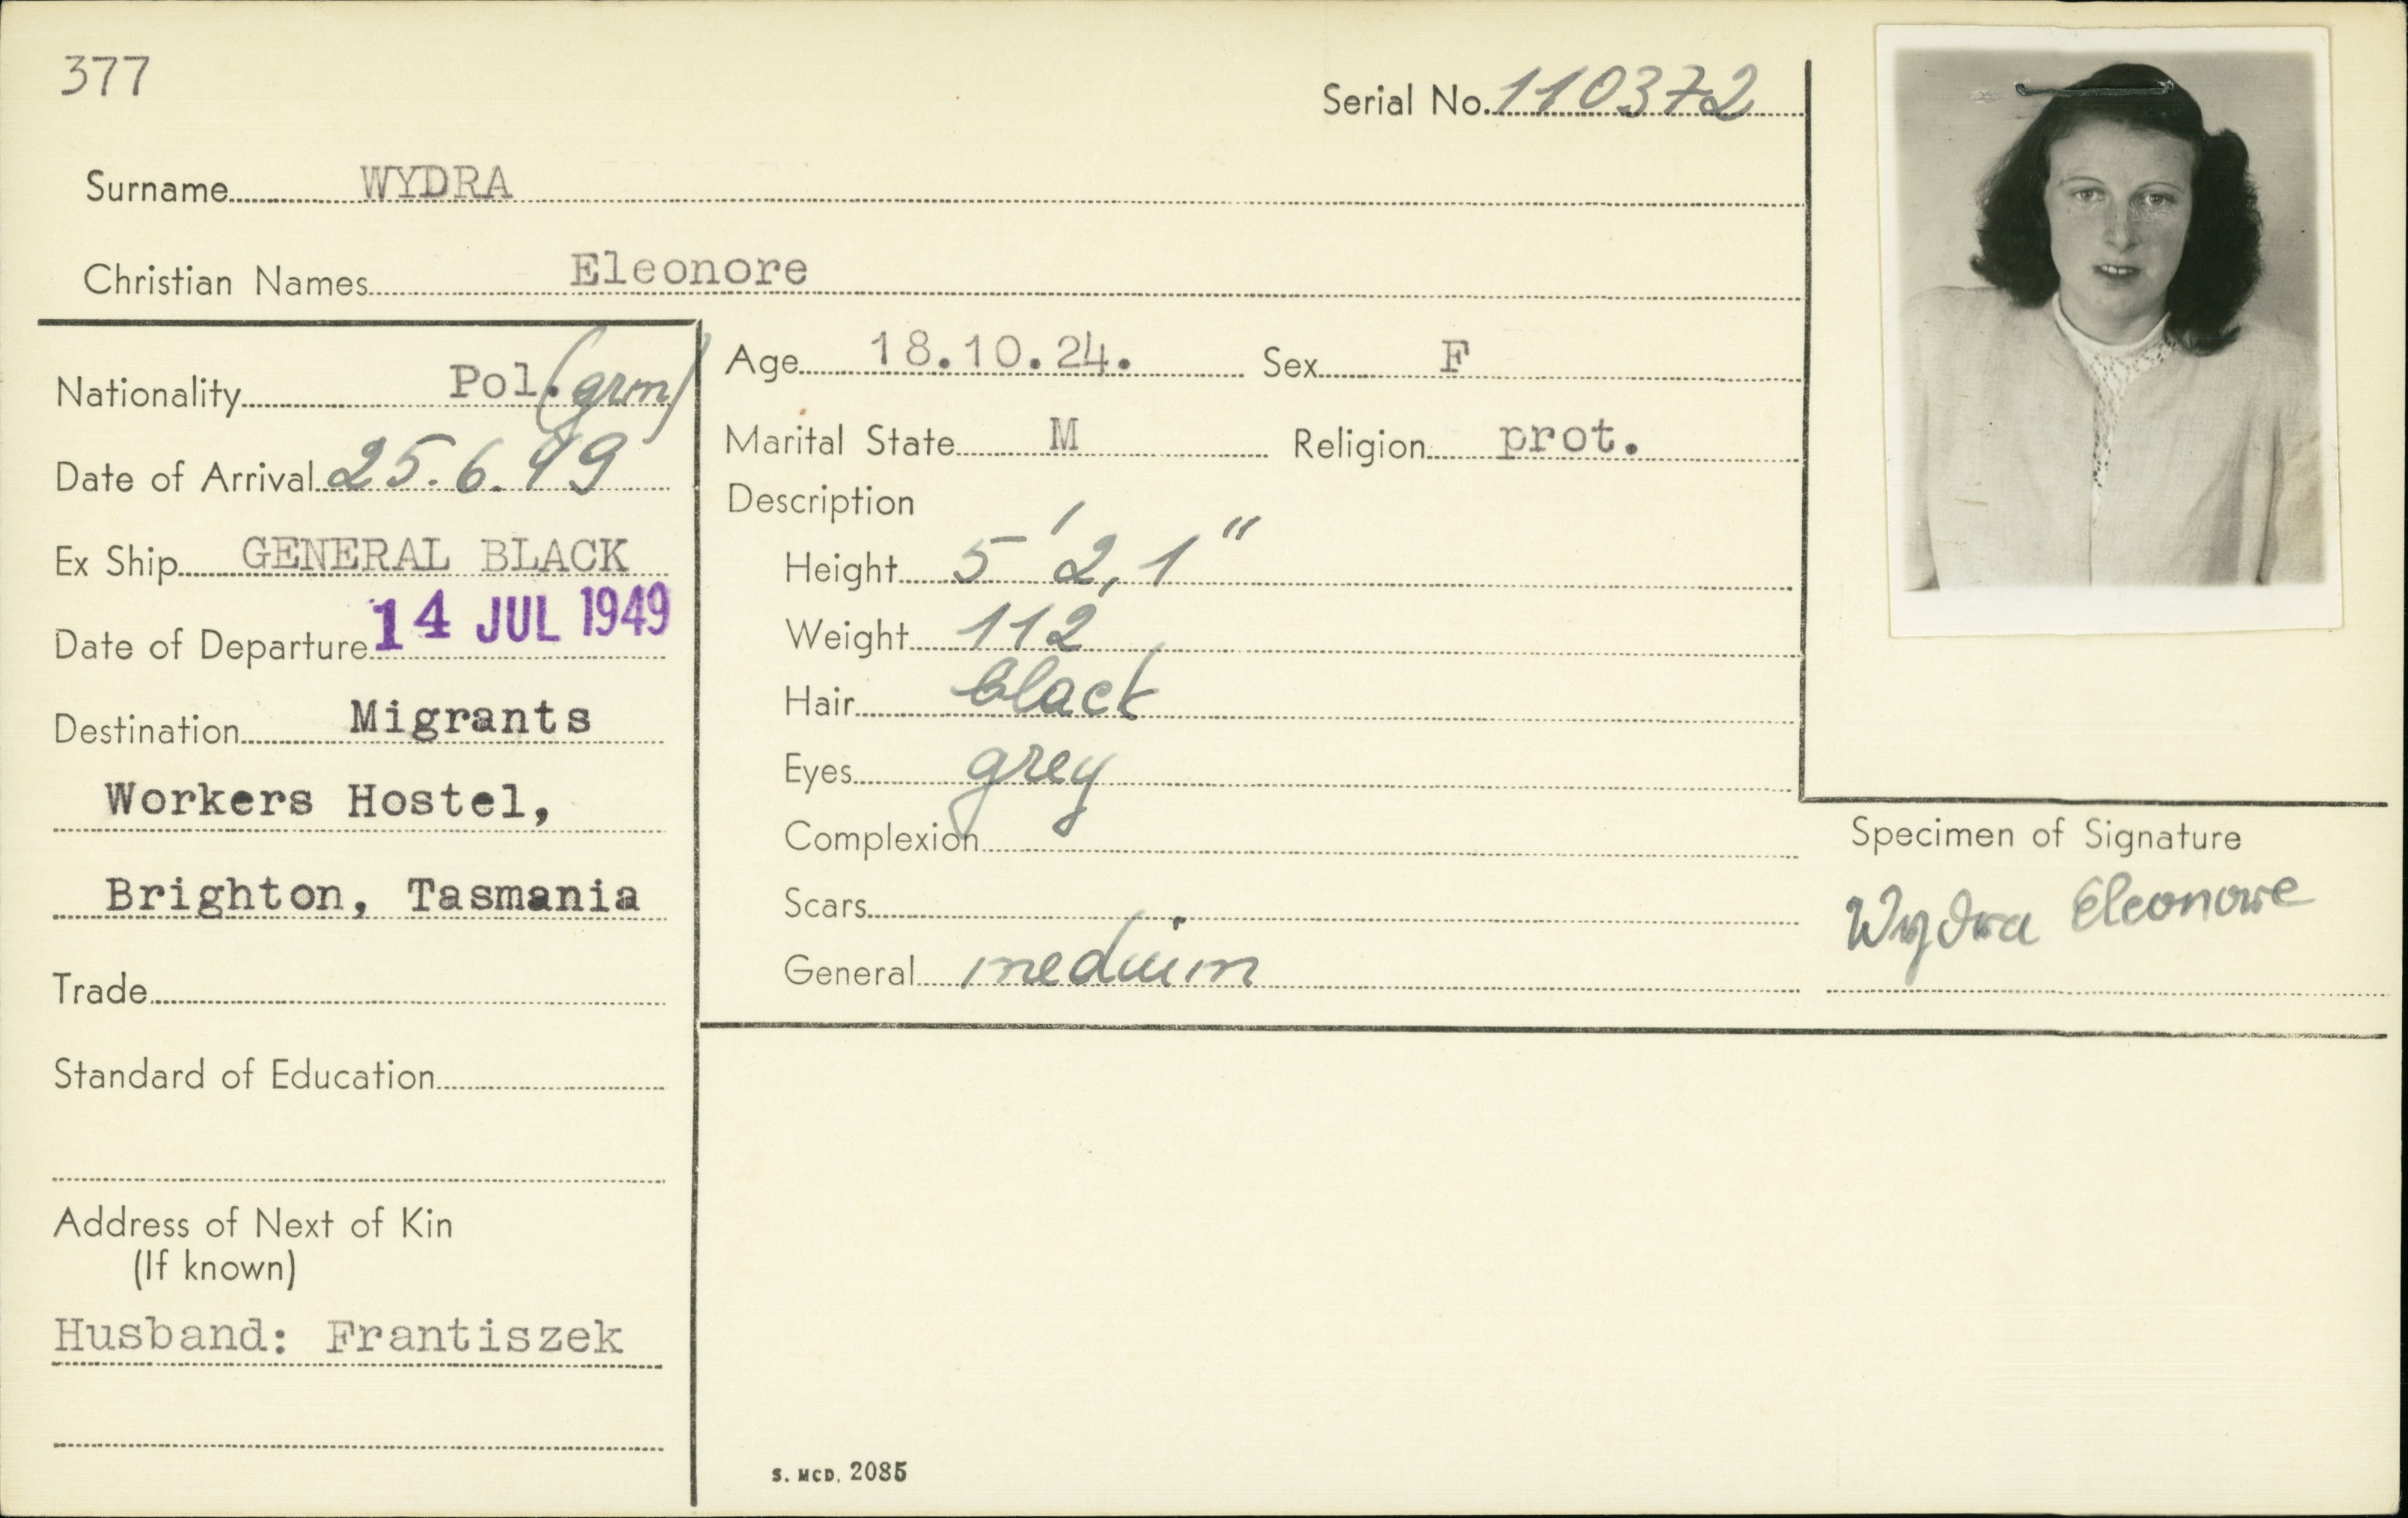 377
Serial No. 110372
Surname WYDRA
Christian Names Eleonore
Nationality Pol. (grm)
Date of Arrival 25.6.49
Ex Ship GENERAL BLACK
Date of Departure 14 JUL 1949
Destination Migrants
Workers Hostel,
Brighton, Tasmania
Trade
Standard of Education
Address of Next of Kin
(If known)
Husband: Frantiszek
Age 18.10.24. Sex F
Marital State M Religion prot.
Description
Height 5' 2,1"
Weight 112
Hair black
Eyes grey
Complexion
Scars
General medium
Specimen of Signature
Wydra Eleonore
S. MCD. 2085